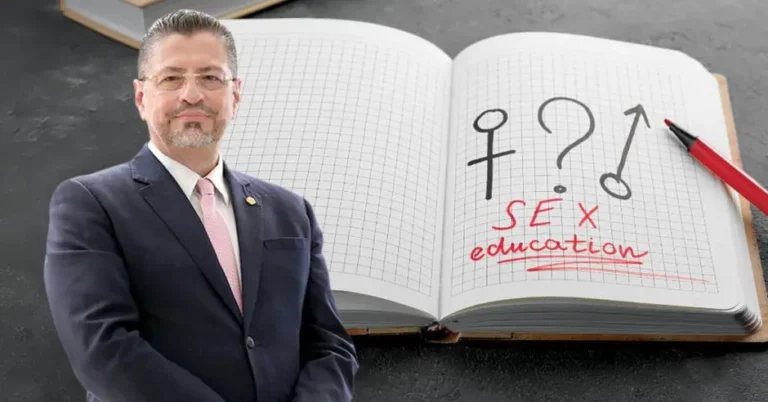 SEX
education